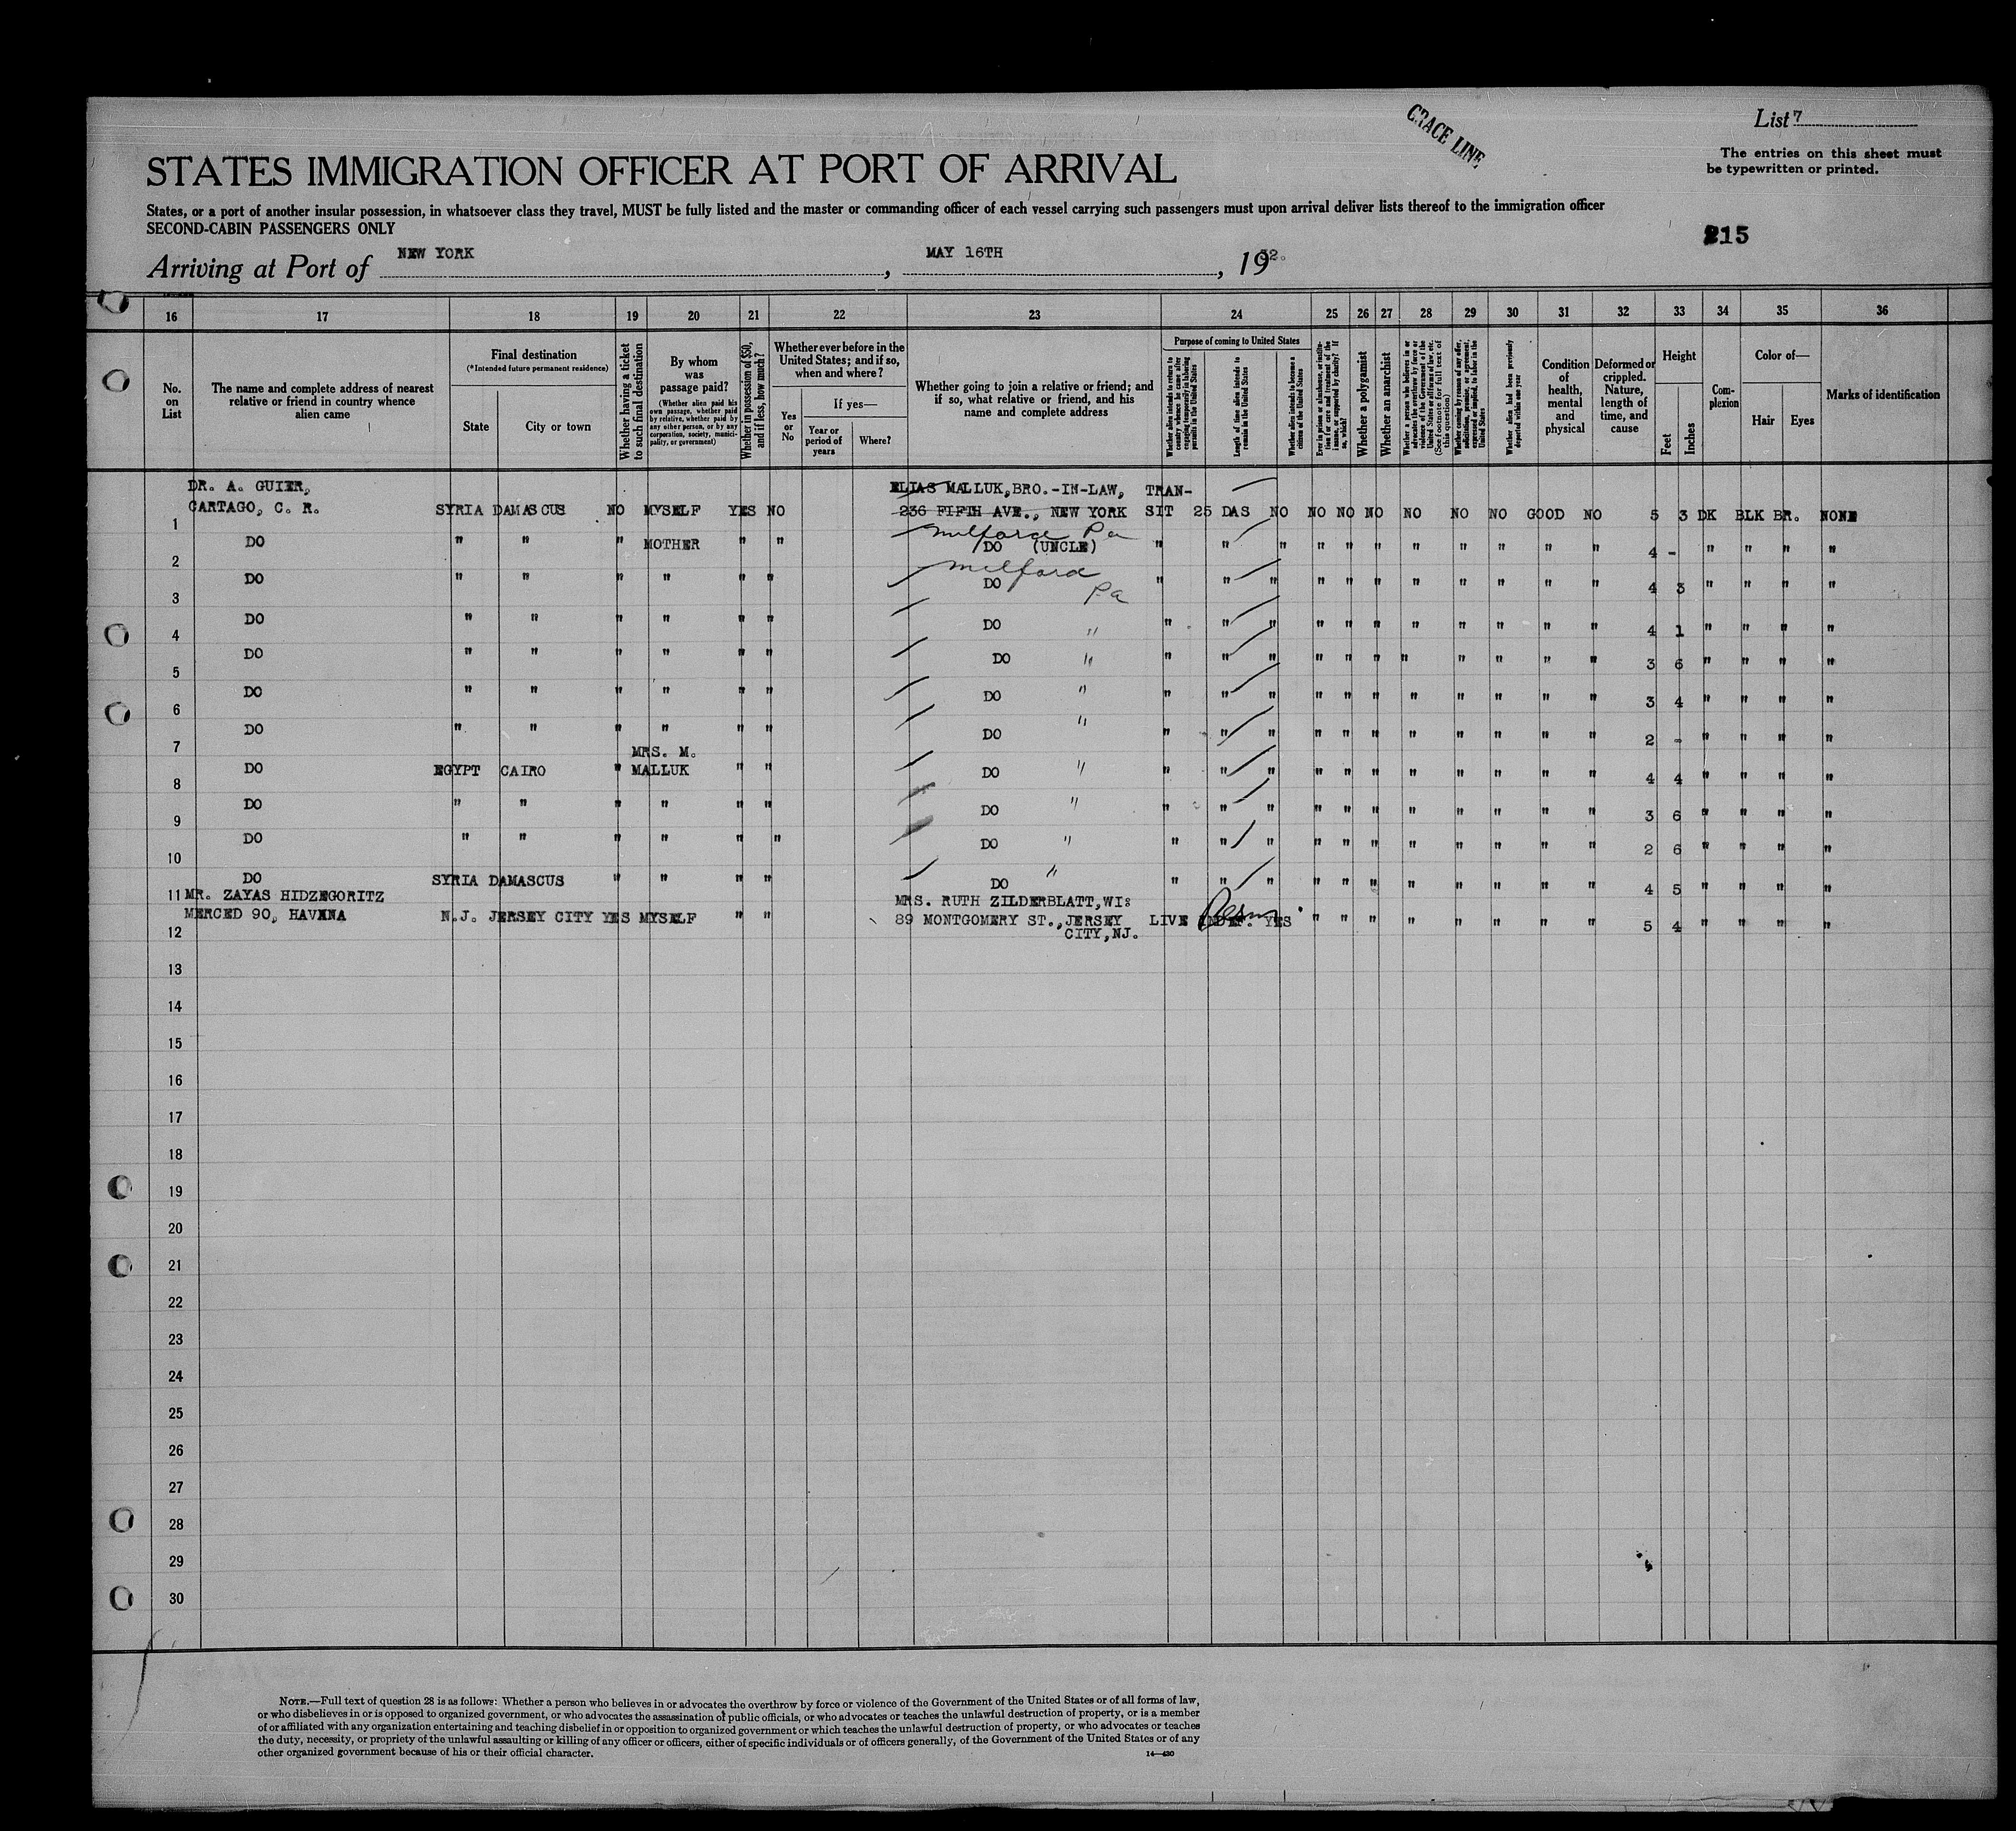 GRACE LINE
List 7
The entries on this sheet must
be typewritten or printed.
STATES IMMIGRATION OFFICER AT PORT OF ARRIVAL
States, or a port of another insular possession, in whatsoever class they travel, MUST be fully listed and the master or commanding officer of each vessel carrying such passengers must upon arrival deliver lists thereof to the immigration officer
SECOND-CABIN PASSENGERS ONLY
215
Arriving at Port of NEW YORK, MAY 16TH, 1932.
16 17 18 19 20 21 22 23 24 25 26 27 28 29 30 31 32 33 34 35 36
No. on List
The name and complete address of nearest relative or friend in country whence alien came
Final destination
(*Intended future permanent residence)
State
City or town
Whether having a ticket to such final destination
By whom was passage paid?
(Whether alien paid his own passage, whether paid by relative, whether paid by any other person, or by any corporation, society, municipality, or government)
Whether in possession of $50, and if less, how much?
Whether ever before in the United States; and if so, when and where?
Yes or No
If yes—
Year or period of years
Where?
Whether going to join a relative or friend; and if so, what relative or friend, and his name and complete address
Purpose of coming to United States
Whether alien intends to return to country whence he came after engaging temporarily in laboring pursuits in the United States
Length of time alien intends to remain in the United States
Whether alien intends to become a citizen of the United States
Ever in prison or almshouse, or institution for care and treatment of the insane, or supported by charity? If so, which?
Whether a polygamist
Whether an anarchist
Whether a person who believes in or advocates the overthrow by force or violence of the Government of the United States or all forms of law, etc. (See footnote for full text of this question)
Whether coming by reason of any offer, solicitation, promise, or agreement, expressed or implied, to labor in the United States
Whether alien had been previously deported within one year
Condition of health, mental and physical
Deformed or crippled. Nature, length of time, and cause
Height
Feet
Inches
Complexion
Color of—
Hair
Eyes
Marks of identification
DR. A. GUIER, ELIAS MALLUK, BRO.-IN-LAW, TRAN-
1 CARTAGO, C. R. SYRIA DAMASCUS NO MYSELF YES NO 236 FIFTH AVE., NEW YORK SIT 25 DAS NO NO NO NO NO NO NO GOOD NO 5 3 DK BLK BR. NONE
Milford Pa
2 DO " " " MOTHER " " DO (UNCLE) " " " " " " " " " " " 4 - " " " "
Milford Pa
3 DO " " " " " " DO " " " " " " " " " " " 4 3 " " " "
4 DO " " " " " " DO " " " " " " " " " " " " 4 1 " " " "
5 DO " " " " " " DO " " " " " " " " " " " " 3 6 " " " "
6 DO " " " " " " DO " " " " " " " " " " " " 3 4 " " " "
7 DO " " " " " " DO " " " " " " " " " " " " 2 - " " " "
MRS. M.
8 DO EGYPT CAIRO " MALLUK " " DO " " " " " " " " " " " " 4 4 " " " "
9 DO " " " " " " DO " " " " " " " " " " " " 3 6 " " " "
10 DO " " " " " " DO " " " " " " " " " " " " 2 6 " " " "
11 DO SYRIA DAMASCUS " " " " DO " " " " " " " " " " " " 4 5 " " " "
MR. ZAYAS HIDZEGORITZ MRS. RUTH ZILDERBLATT, WI:
12 MERCED 90, HAVANA N.J. JERSEY CITY YES MYSELF " " 89 MONTGOMERY ST., JERSEY LIVE INDEF. YES " " " " " " " " 5 4 " " " "
CITY, NJ.
13
14
15
16
17
18
19
20
21
22
23
24
25
26
27
28
29
30
NOTE.—Full text of question 28 is as follows: Whether a person who believes in or advocates the overthrow by force or violence of the Government of the United States or of all forms of law,
or who disbelieves in or is opposed to organized government, or who advocates the assassination of public officials, or who advocates or teaches the unlawful destruction of property, or is a member
of or affiliated with any organization entertaining and teaching disbelief in or opposition to organized government or which teaches the unlawful destruction of property, or who advocates or teaches
the duty, necessity, or propriety of the unlawful assaulting or killing of any officer or officers, either of specific individuals or of officers generally, of the Government of the United States or of any
other organized government because of his or their official character.
14—430